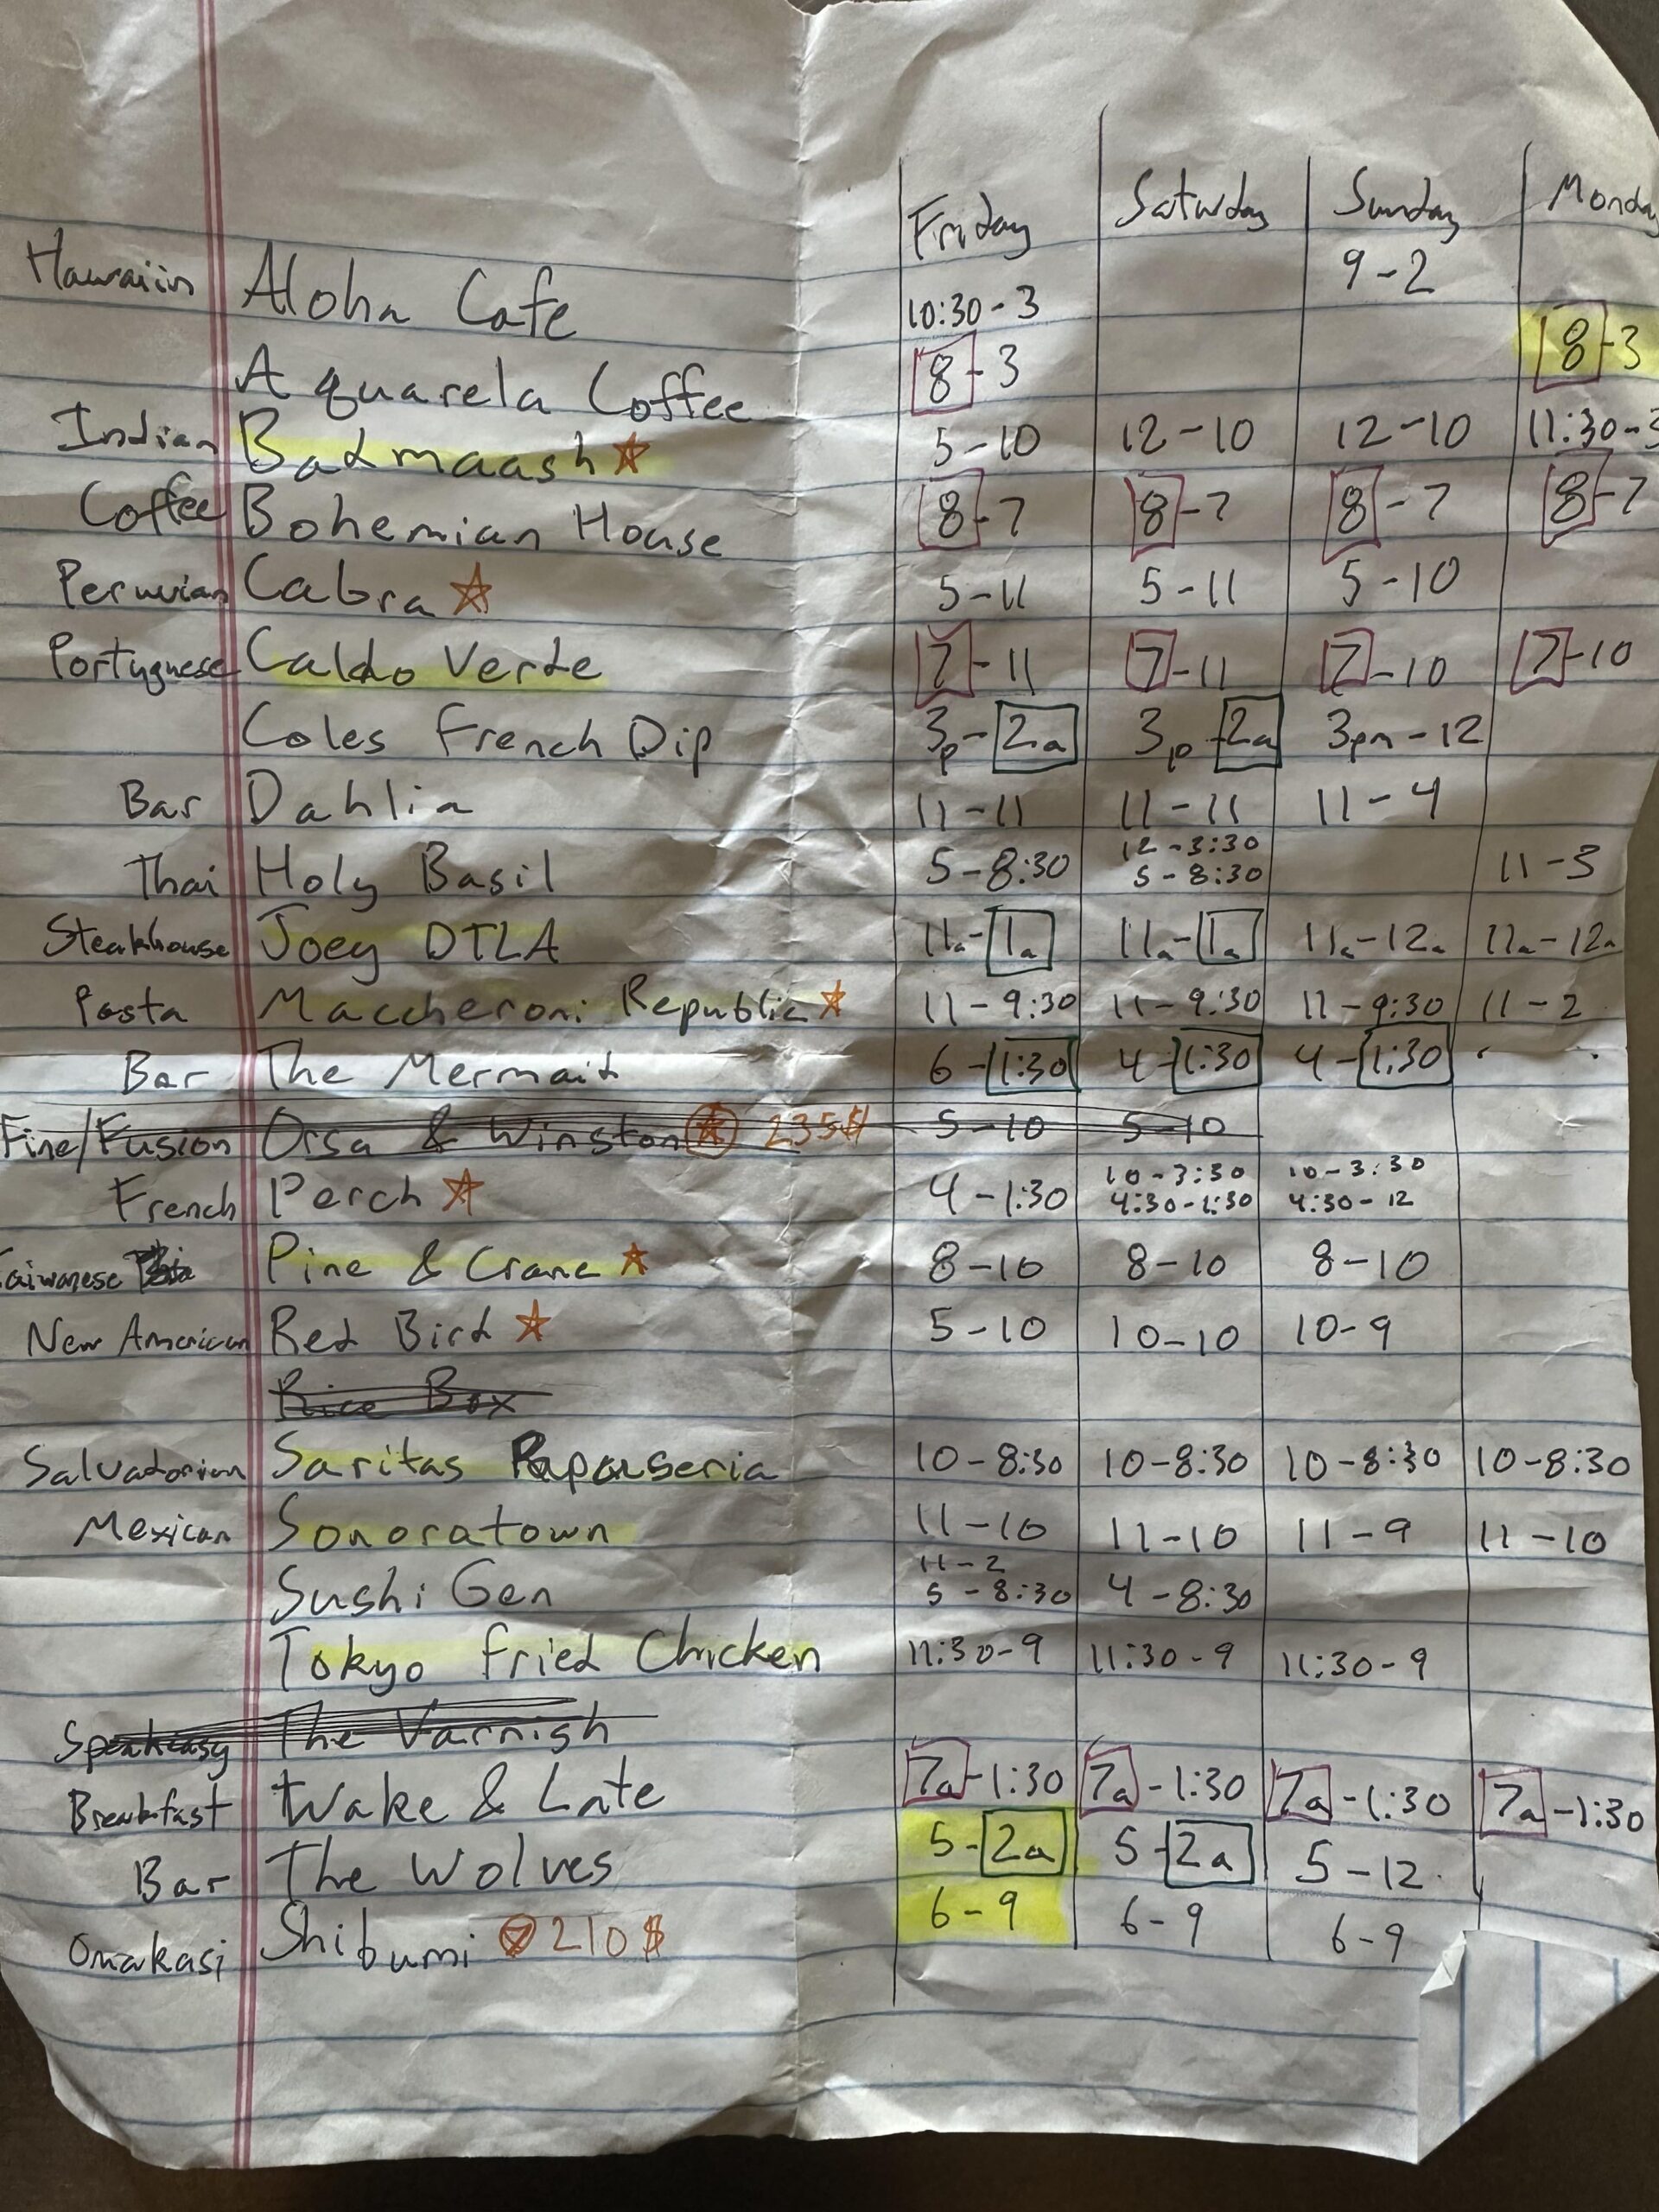 Friday Saturday Sunday Monday
Hawaiin Aloha Cafe 10:30-3 9-2
Aquarela Coffee 8-3 8-3
Indian Badmaash 5-10 12-10 12-10 11:30-3
Coffee Bohemian House 8-7 8-7 8-7 8-7
Peruvian Cabra 5-11 5-11 5-10
Portugnese Caldo Verde 7-11 7-11 7-10 7-10
Coles French Dip 3p-2a 3p-2a 3pm-12
Bar Dahlia 11-11 11-11 11-4
Thai Holy Basil 5-8:30 12-3:30 5-8:30 11-3
Steakhouse Joey DTLA 11a-1a 11a-1a 11a-12a 11a-12a
Pasta Maccheroni Republic 11-9:30 11-9:30 11-9:30 11-2
Bar The Mermaid 6-1:30 4-1:30 4-1:30
Fine/Fusion Orsa & Winston 235$ 5-10 5-10
French Perch 4-1:30 10-3:30 4:30-1:30 10-3:30 4:30-12
Taiwanese Pine & Crane 8-10 8-10 8-10
New American Red Bird 5-10 10-10 10-9
Rice Box
Salvadorian Saritas Pupuseria 10-8:30 10-8:30 10-8:30 10-8:30
Mexican Sonoratown 11-10 11-10 11-9 11-10
Sushi Gen 11-2 5-8:30 4-8:30
Tokyo Fried Chicken 11:30-9 11:30-9 11:30-9
Speakeasy The Varnish
Breakfast Wake & Late 7a-1:30 7a-1:30 7a-1:30 7a-1:30
Bar The Wolves 5-2a 5-2a 5-12
Omakasi Shibumi 210$ 6-9 6-9 6-9